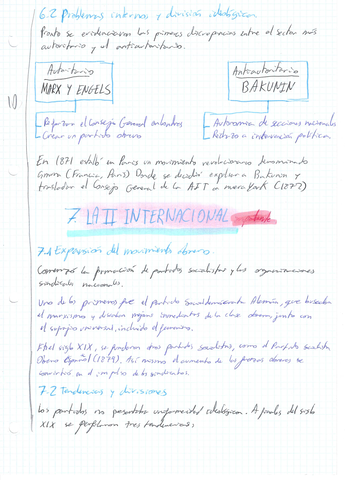 6.2 Problemas internos y división ideológica
Pronto se evidenciaron las primeras discrepancias entre el sector más
autoritario y el antiautoritario.
Autoritario
MARX Y ENGELS
Antiautoritario
BAKUNIN
10
Reforzar el Consejo General
Crear un partido obrero
Autonomía de secciones nacionales
Rechazo a intervención política
En 1871 estalló en París un movimiento revolucionario denominado
(Francia, París) Donde se decidió expulsar a Bakunin y
trasladar el Consejo General de la AIT a nueva York (1872)
7. LA II INTERNACIONAL
7.1 Expansión del movimiento obrero.
Comenzó la formación de partidos socialistas y las organizaciones
sindicales nacionales.
Uno de los primeros fue el partido Socialdemócrata Alemán, que buscaba
el marxismo y deseaban mejoras inmediatas de la clase obrera, junto con
el sufragio universal, incluido el femenino.
En el siglo XIX, se fundaron otros partidos socialistas, como el Partido Socialista
Obrero Español (1879). Así mismo el aumento de las fuerzas obreras se
convirtió en el impulso de los sindicatos.
7.2 Tendencias y divisiones
Los partidos no presentaban uniformidad ideológica. A finales del siglo
XIX se perfilaron tres tendencias: